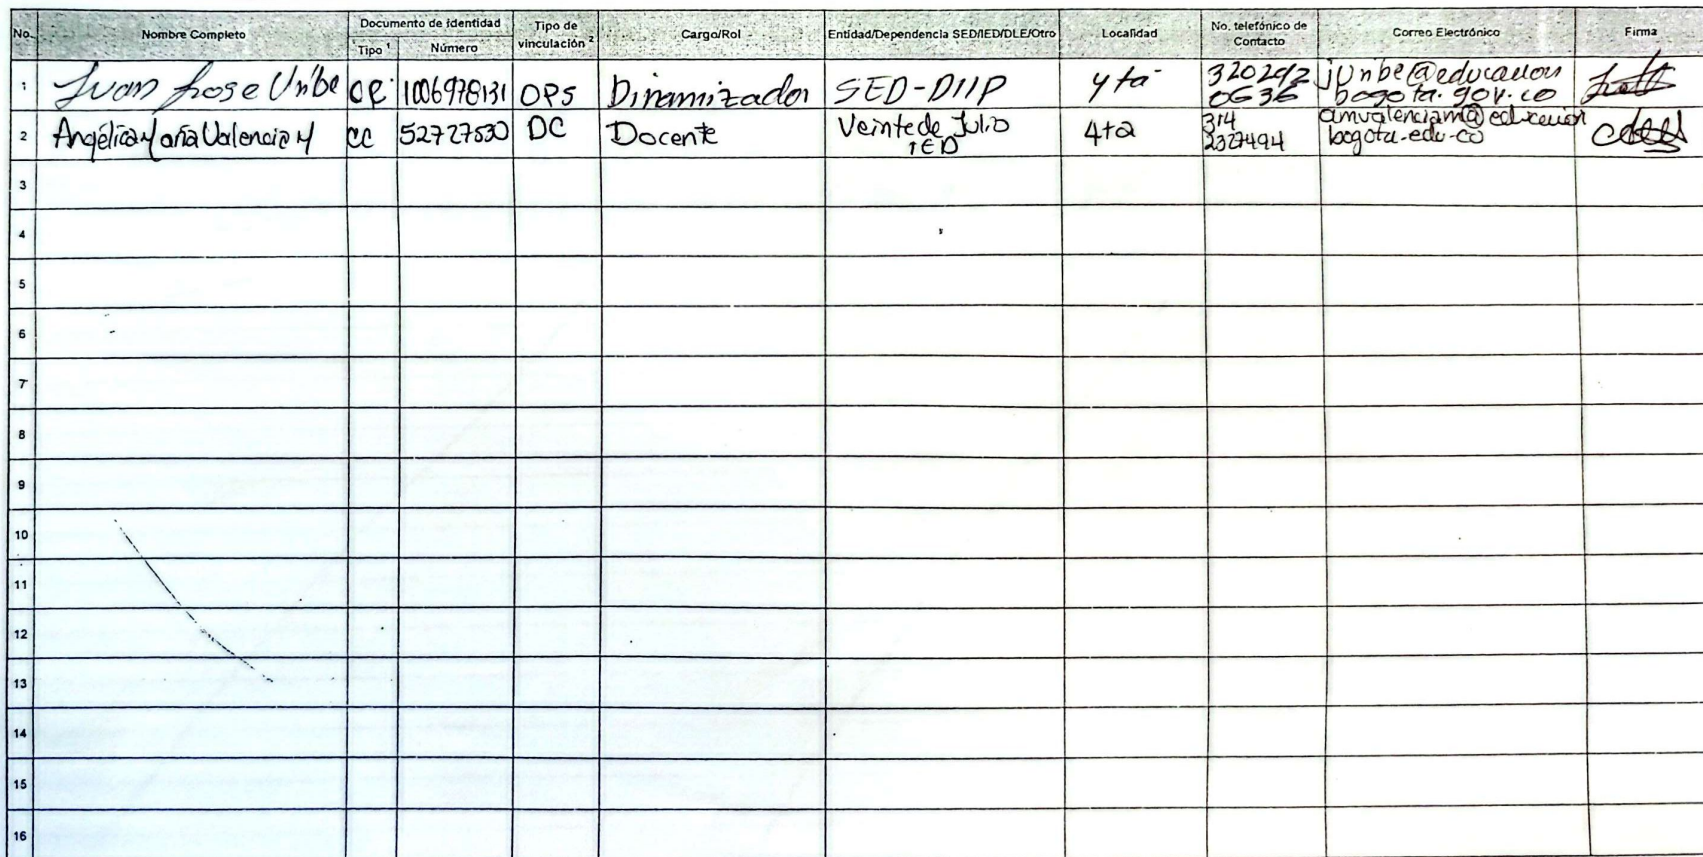 No. Nombre Completo Documento de identidad Tipo de vinculación 2 Cargo/Rol Entidad/Dependencia SED/IED/DLE/Otro Localidad No. telefónico de Contacto Correo Electrónico Firma
Tipo 1 Número
1 Juan Jose Uribe 1006978131 OPS Dinamizador SED-DIIP 4ta 320242 0636 jUribe@educacion bogota.gov.co
2 Angélica María Valencia M CC 52727530 DC Docente Veinte de Julio IED 4ta 314 2327494 amvalenciam@educacion bogota.edu.co
3
4
5
6
7
8
9
10
11
12
13
14
15
16